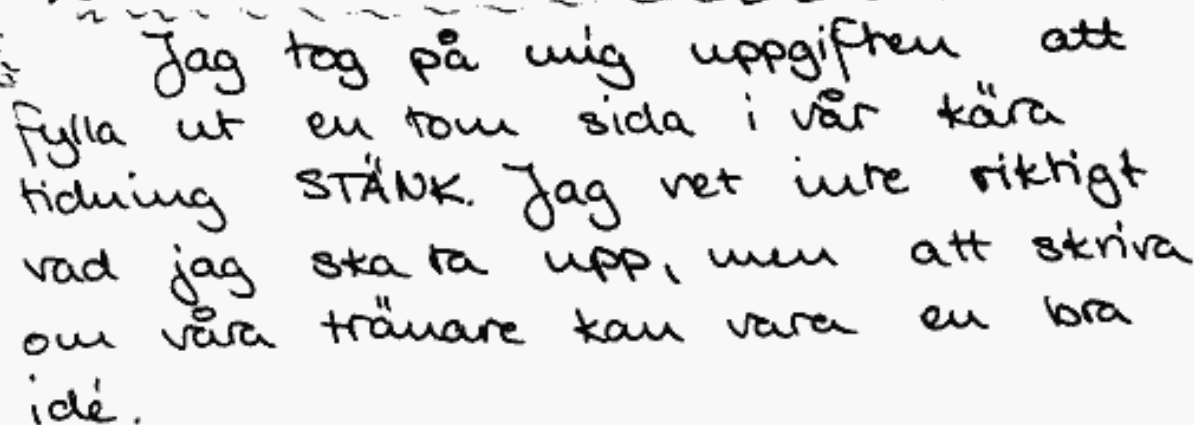 Jag tog på mig uppgiften att
fylla ut en tom sida i vår kära
tidning STÄNK. Jag vet inte riktigt
vad jag ska ta upp, men att skriva
om våra tränare kan vara en bra
idé.